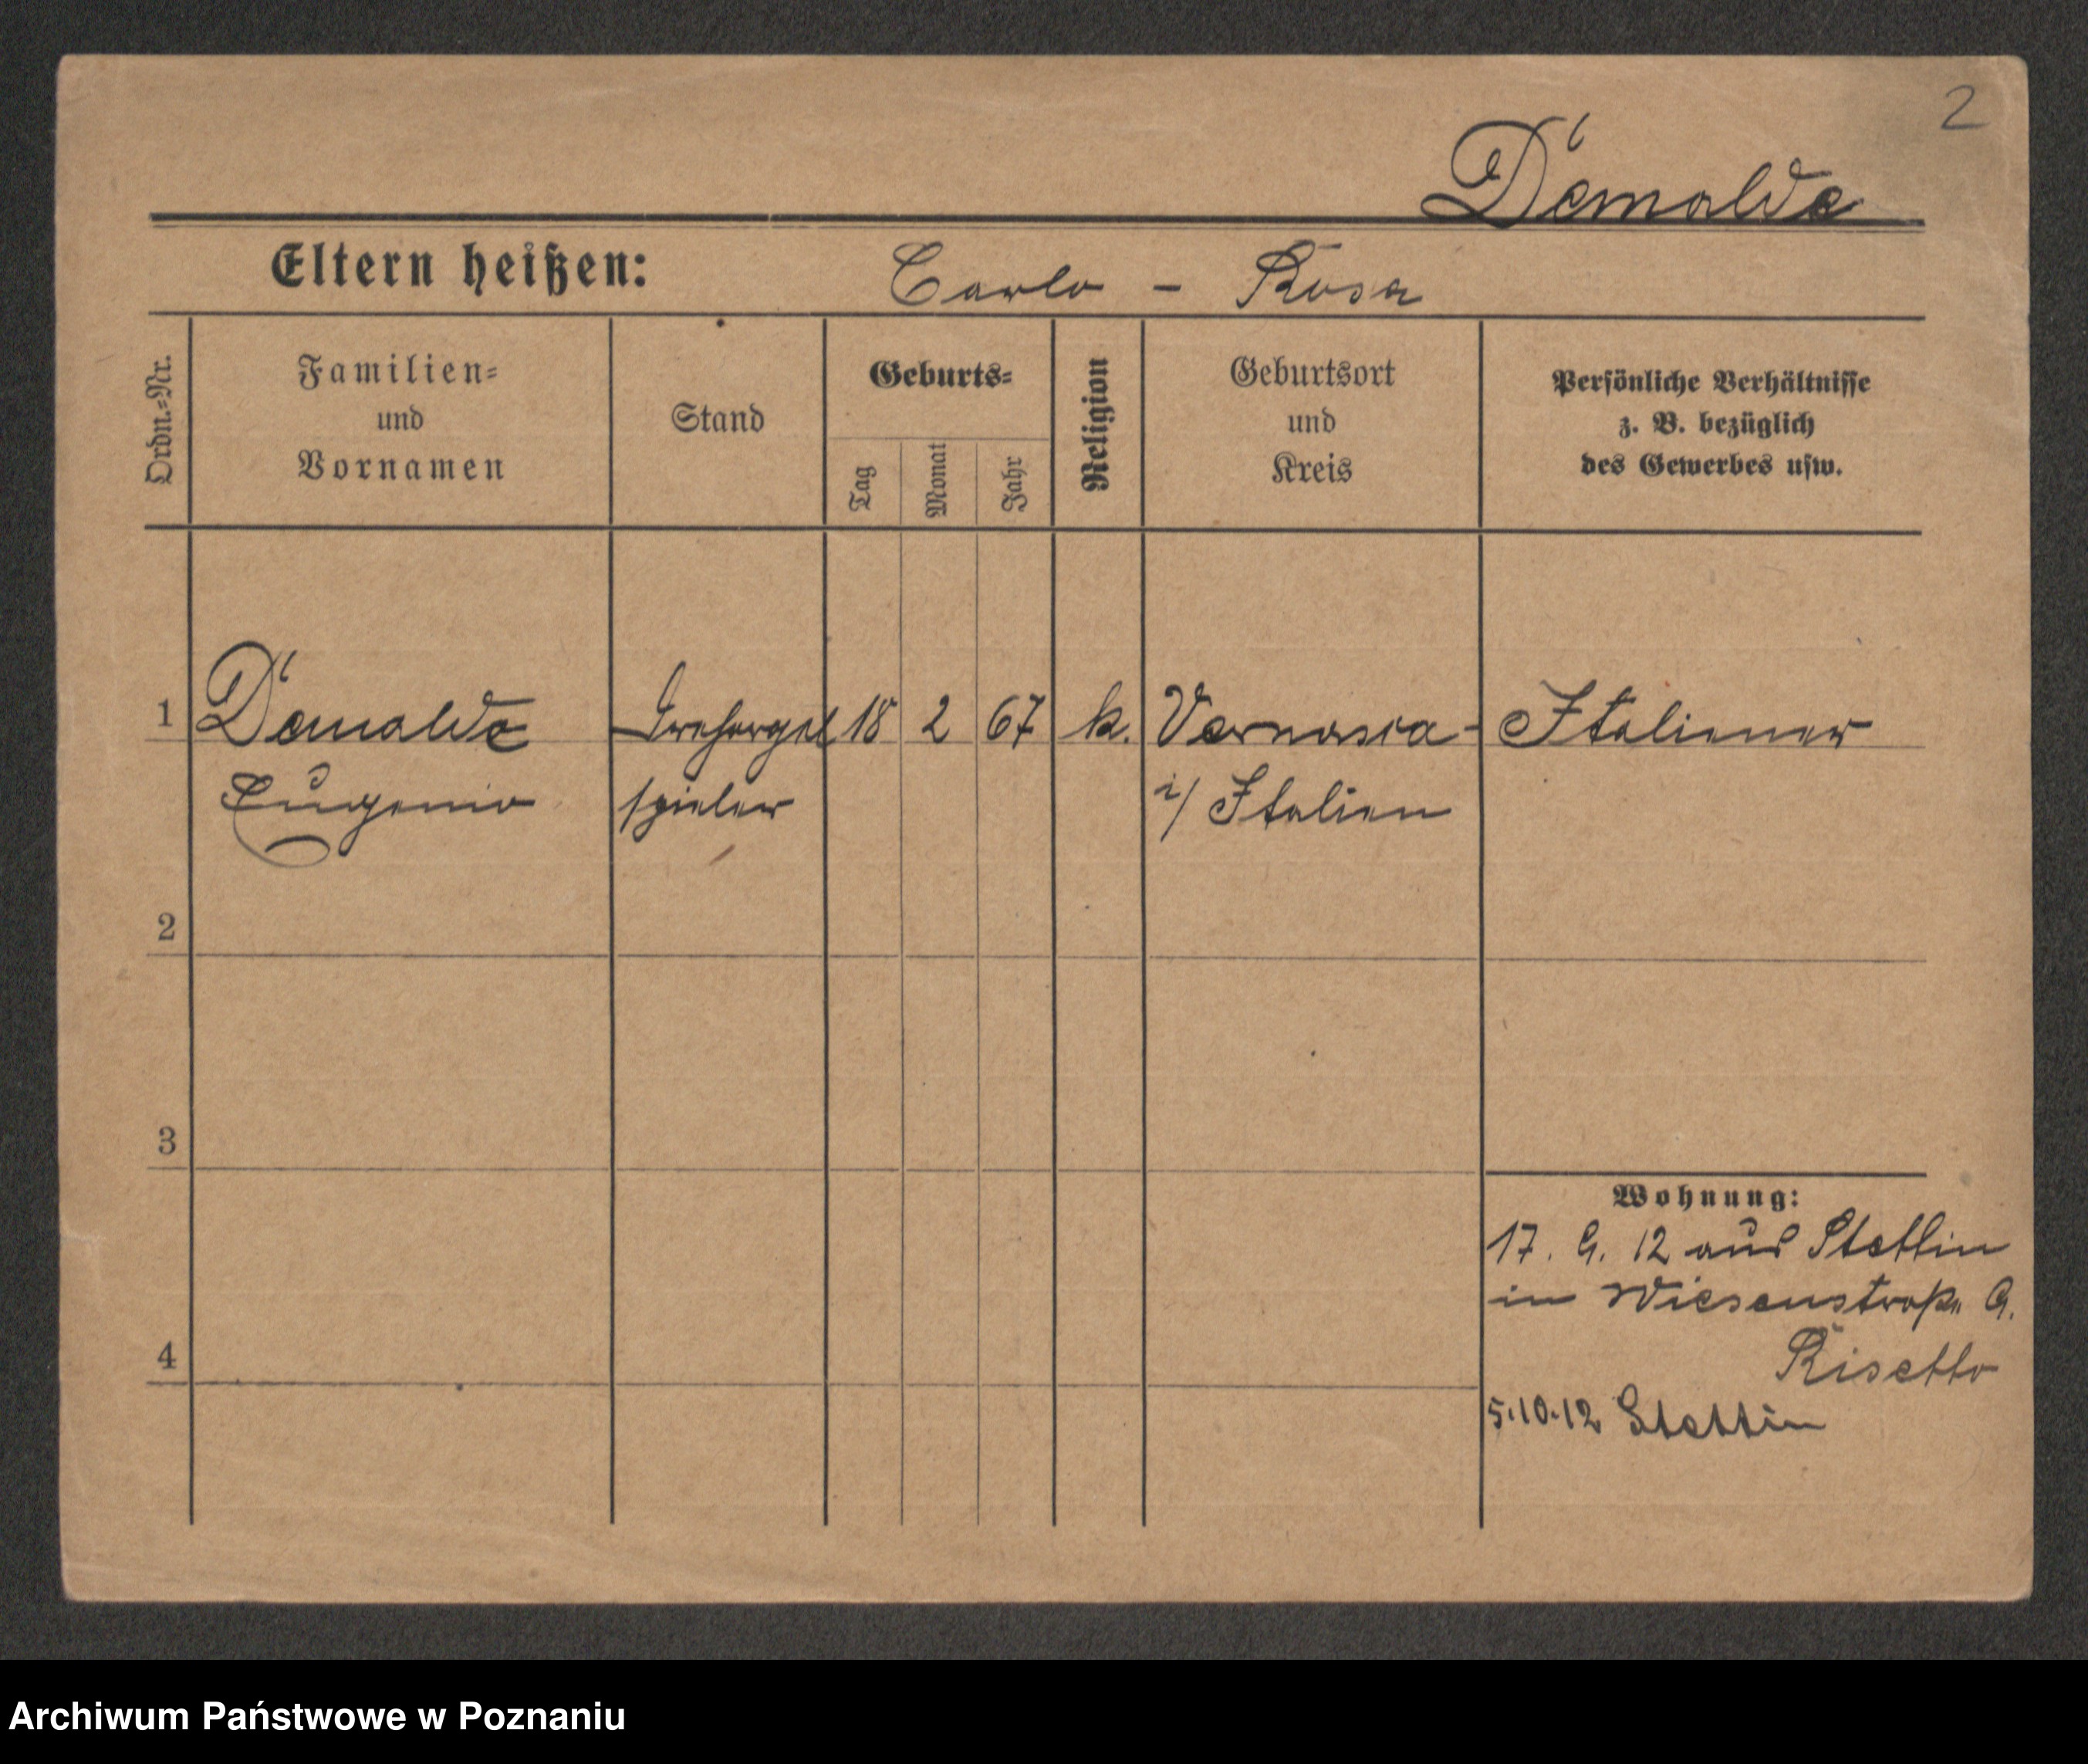 2
D'emalde
Eltern heißen: Carlo - Rosa
Ordn.=Nr.
Familien=
und
Vornamen
Stand
Geburts=
Tag
Monat
Jahr
Religion
Geburtsort
und
Kreis
Persönliche Verhältnisse
z. B. bezüglich
des Gewerbes usw.
1 D'emalde Drehorgel 18 2 67 k. Vernasca - Italiener
Eugenio spieler i/ Italien
2
3
4
Wohnung:
17. 9. 12 aus Stettin
in Wiesenstraße 9.
Risetto
5.10.12 Stettin
Archiwum Państwowe w Poznaniu